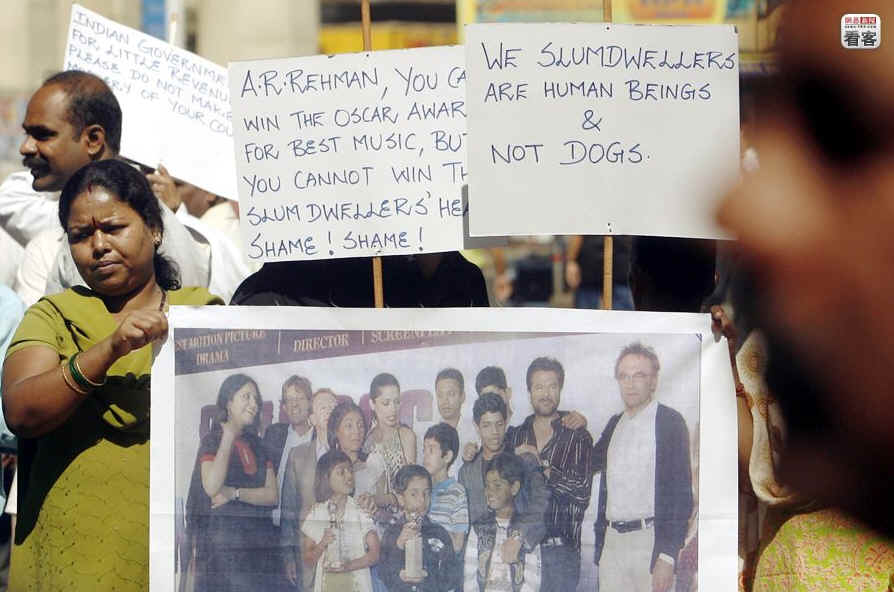 INDIAN GOVERNME
FOR, LITTLE REVENU
PLEASE DO NOT MAKE
OF YOUR COU
A.R.REHMAN, YOU CA
WIN THE OSCAR AWAR
FOR BEST MUSIC, BU
YOU CANNOT WIN TH
SLUM DWELLERS' HEA
SHAME! SHAME!
WE SLUMDWELLERS
ARE HUMAN BEINGS
&
NOT DOGS.
MOTION PICTURE
DRAMA
DIRECTOR
看客